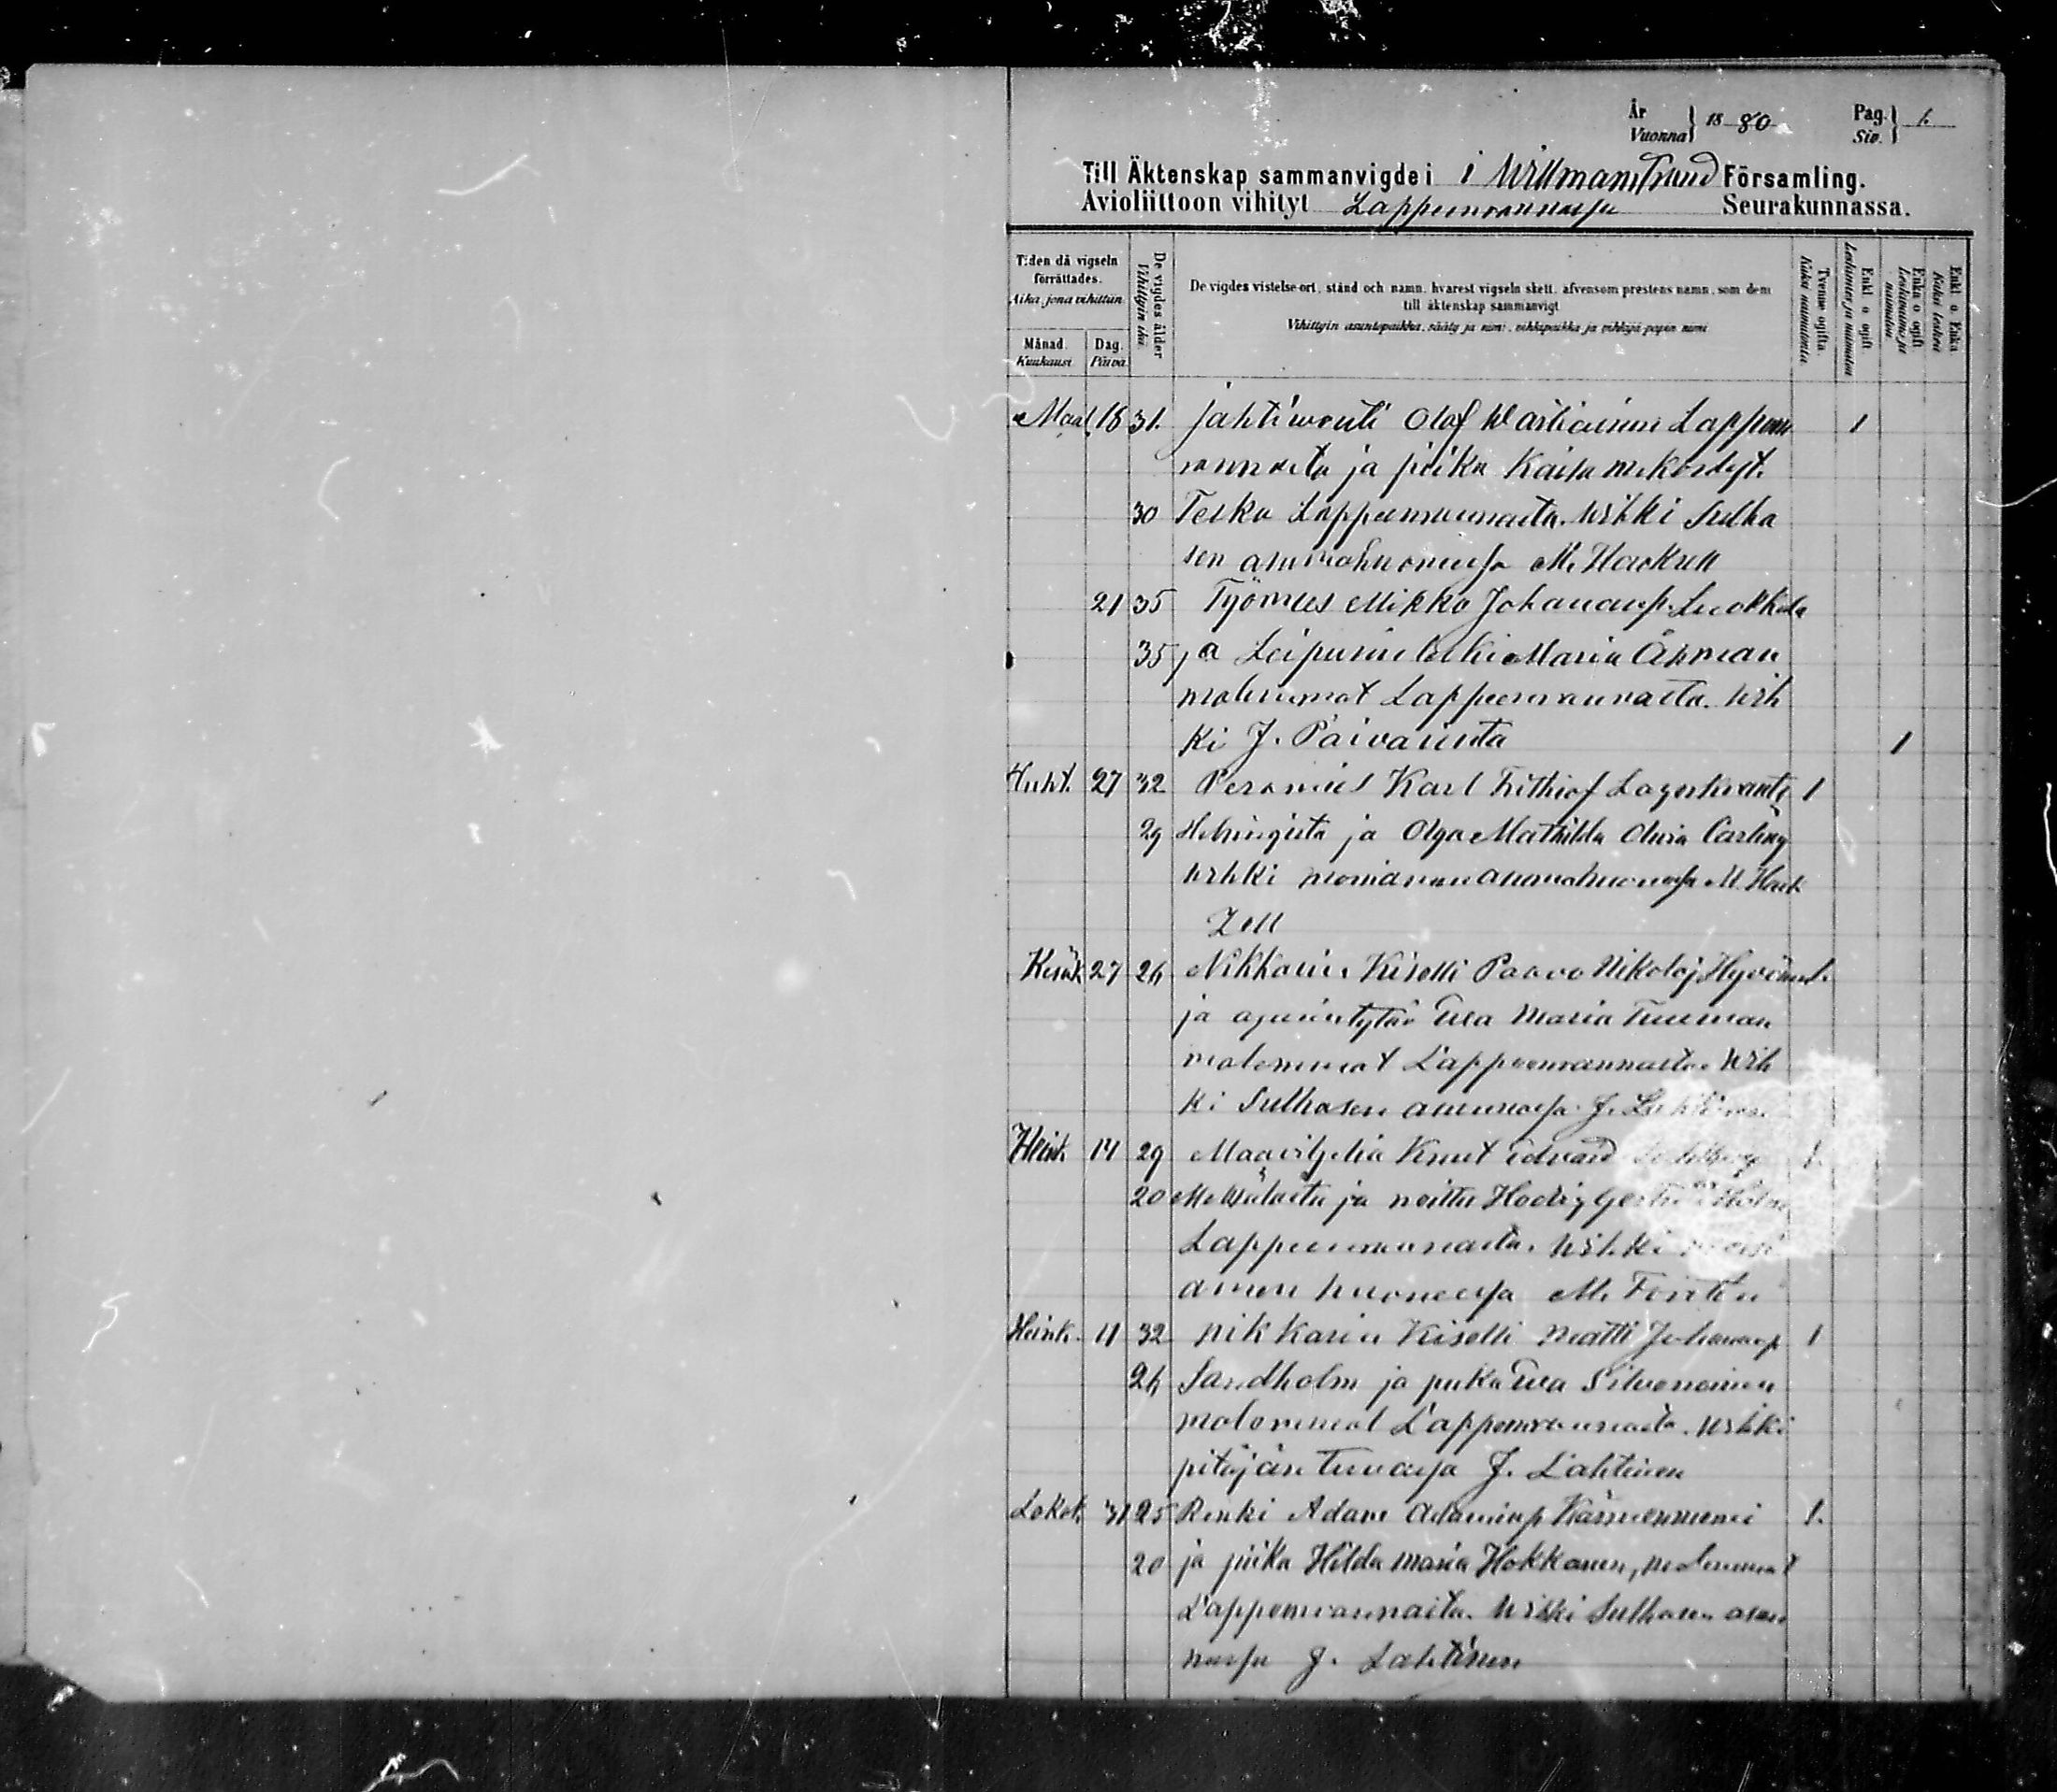 År
Vuonna } 1880
Pag.
Siv. } 1.
Till Äktenskap sammanvigde i Willmanstrand Församling.
Avioliittoon vihityt Lappeenrannassa Seurakunnassa.
Tiden då vigseln förrättades.
Aika, jona vihittiin.
Månad. Kuukausi.
Dag. Päivä.
De vigdes ålder
Vihittyin ikä.
De vigdes vistelse-ort, stånd och namn, hvarest vigseln skett, äfvensom prestens namn, som dem
till äktenskap sammanvigt
Vihittyin asuntopaikka, sääty ja nimi, vihkipaikka ja vihkijä-papin nimi
Tvenne ogifta.
Kaksi naimatonta.
Enkl. o. ogift.
Leskimies ja naimaton
Enka o. ogift.
Leskivaimo ja naimaton
Enkl. o. Enka.
Kaksi leskeä
Maal. 18 31. jahtiwouti Olof Wartiainen Lappeen 1
rannasta ja piika Kaisa
30 Teska Lappeenrannasta. Wihki Sulha
sen asuinhuoneessa M. Hackzell
21 35 Työmies Mikko Johananp. Luokkola
35 ja Leipurin leski Maria Åhman
molemmat Lappeenrannasta. Wih
ki J. Päivärinta 1
Huht. 27 32 Karl Frithiof Lagerstrand 1
29 Helsingistä ja Olga Mathilda Carling
Wihki morsiamen asuinhuoneessa M. Hack
zell
Kesäk 27 26 Nikkarin Kiselli Paavo Nikolaj Hyvönen 1.
ja tytär Eva Maria Tuuman
molemmat Lappeenrannasta. Wih
ki Sulhasen asunnossa J. Lahtinen
Heink. 14 29 Maaviljeliä Knut Edvard 1.
20 ja neitty Hedvig
Lappeenrannasta. Wihki morsi
amen huoneessa M.
Heink. 11 32 nikkarin Kiselli Matti Johananp 1
26 Sandholm ja piika Eva Silvenoinen
molemmat Lappeenrannasta. Wihki
pitäjän tuvassa J. Lahtinen
Lokak. 31 25 Renki Adam Adaminp 1.
20 ja piika Hilda Maria Hokkanen, molemmat
Lappeenrannasta. Wihki Sulhasen asun
nossa J. Lahtinen